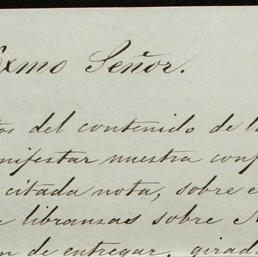 Exmo Señor.
del contenido de
manifestar nuestra
citada nota, sobre
libranzas sobre
de entregar, girad